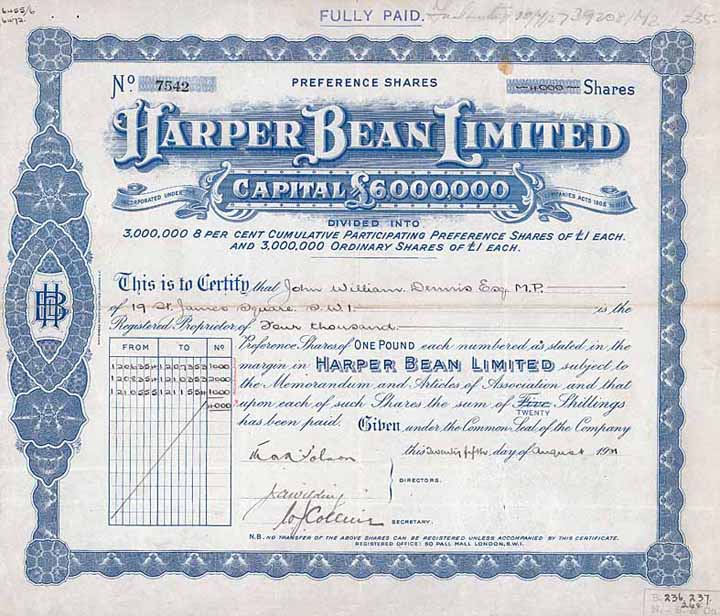 FULLY PAID.
No. 7542
PREFERENCE SHARES
4000 Shares
HARPER BEAN LIMITED
INCORPORATED UNDER
CAPITAL £6000000
COMPANIES ACTS 1908
DIVIDED INTO
3,000,000 8 PER CENT CUMULATIVE PARTICIPATING PREFERENCE SHARES OF £1 EACH.
AND 3,000,000 ORDINARY SHARES OF £1 EACH.
This is to Certify that John William Dennis Esq M.P.
of 19 St. James Square S.W.1. is the
Registered Proprietor of Four thousand
Preference Shares of ONE POUND each numbered as stated in the
margin in HARPER BEAN LIMITED subject to
the Memorandum and Articles of Association and that
upon each of such Shares the sum of Five Shillings
TWENTY
has been paid. Given under the Common Seal of the Company
this twenty fifth day of August
FROM TO No
1206354 1207353 1000
2000
1210554 1211553 1000
4000
HB
DIRECTORS.
SECRETARY.
N.B. NO TRANSFER OF THE ABOVE SHARES CAN BE REGISTERED UNLESS ACCOMPANIED BY THIS CERTIFICATE.
REGISTERED OFFICE: 50 PALL MALL LONDON, S.W.1.
236, 237.